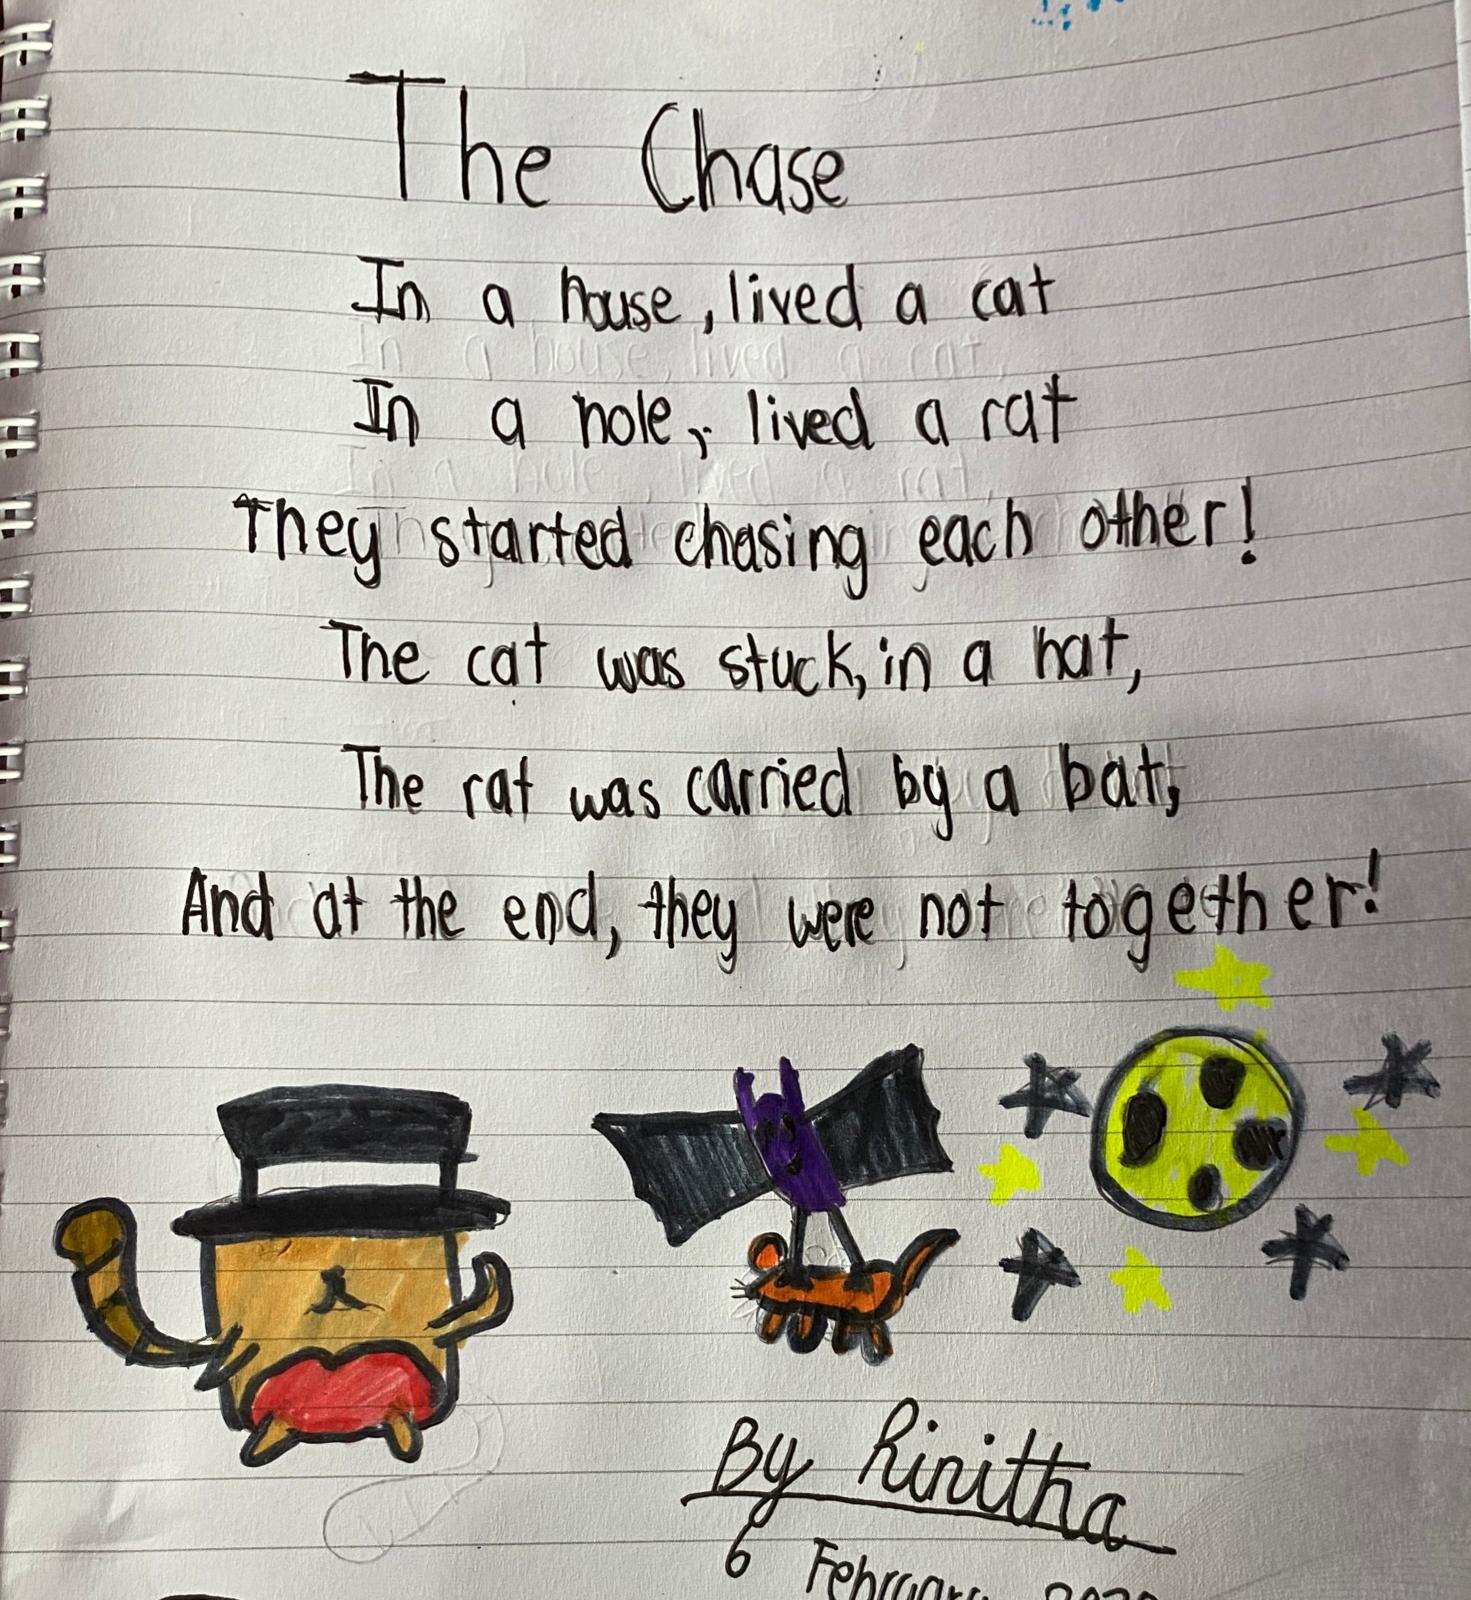 The Chase
In a house, lived a cat
In a hole, lived a rat
They started chasing each other!
The cat was stuck, in a hat,
The rat was carried by a bat,
And at the end, they were not together!
By Rinitha
6 February